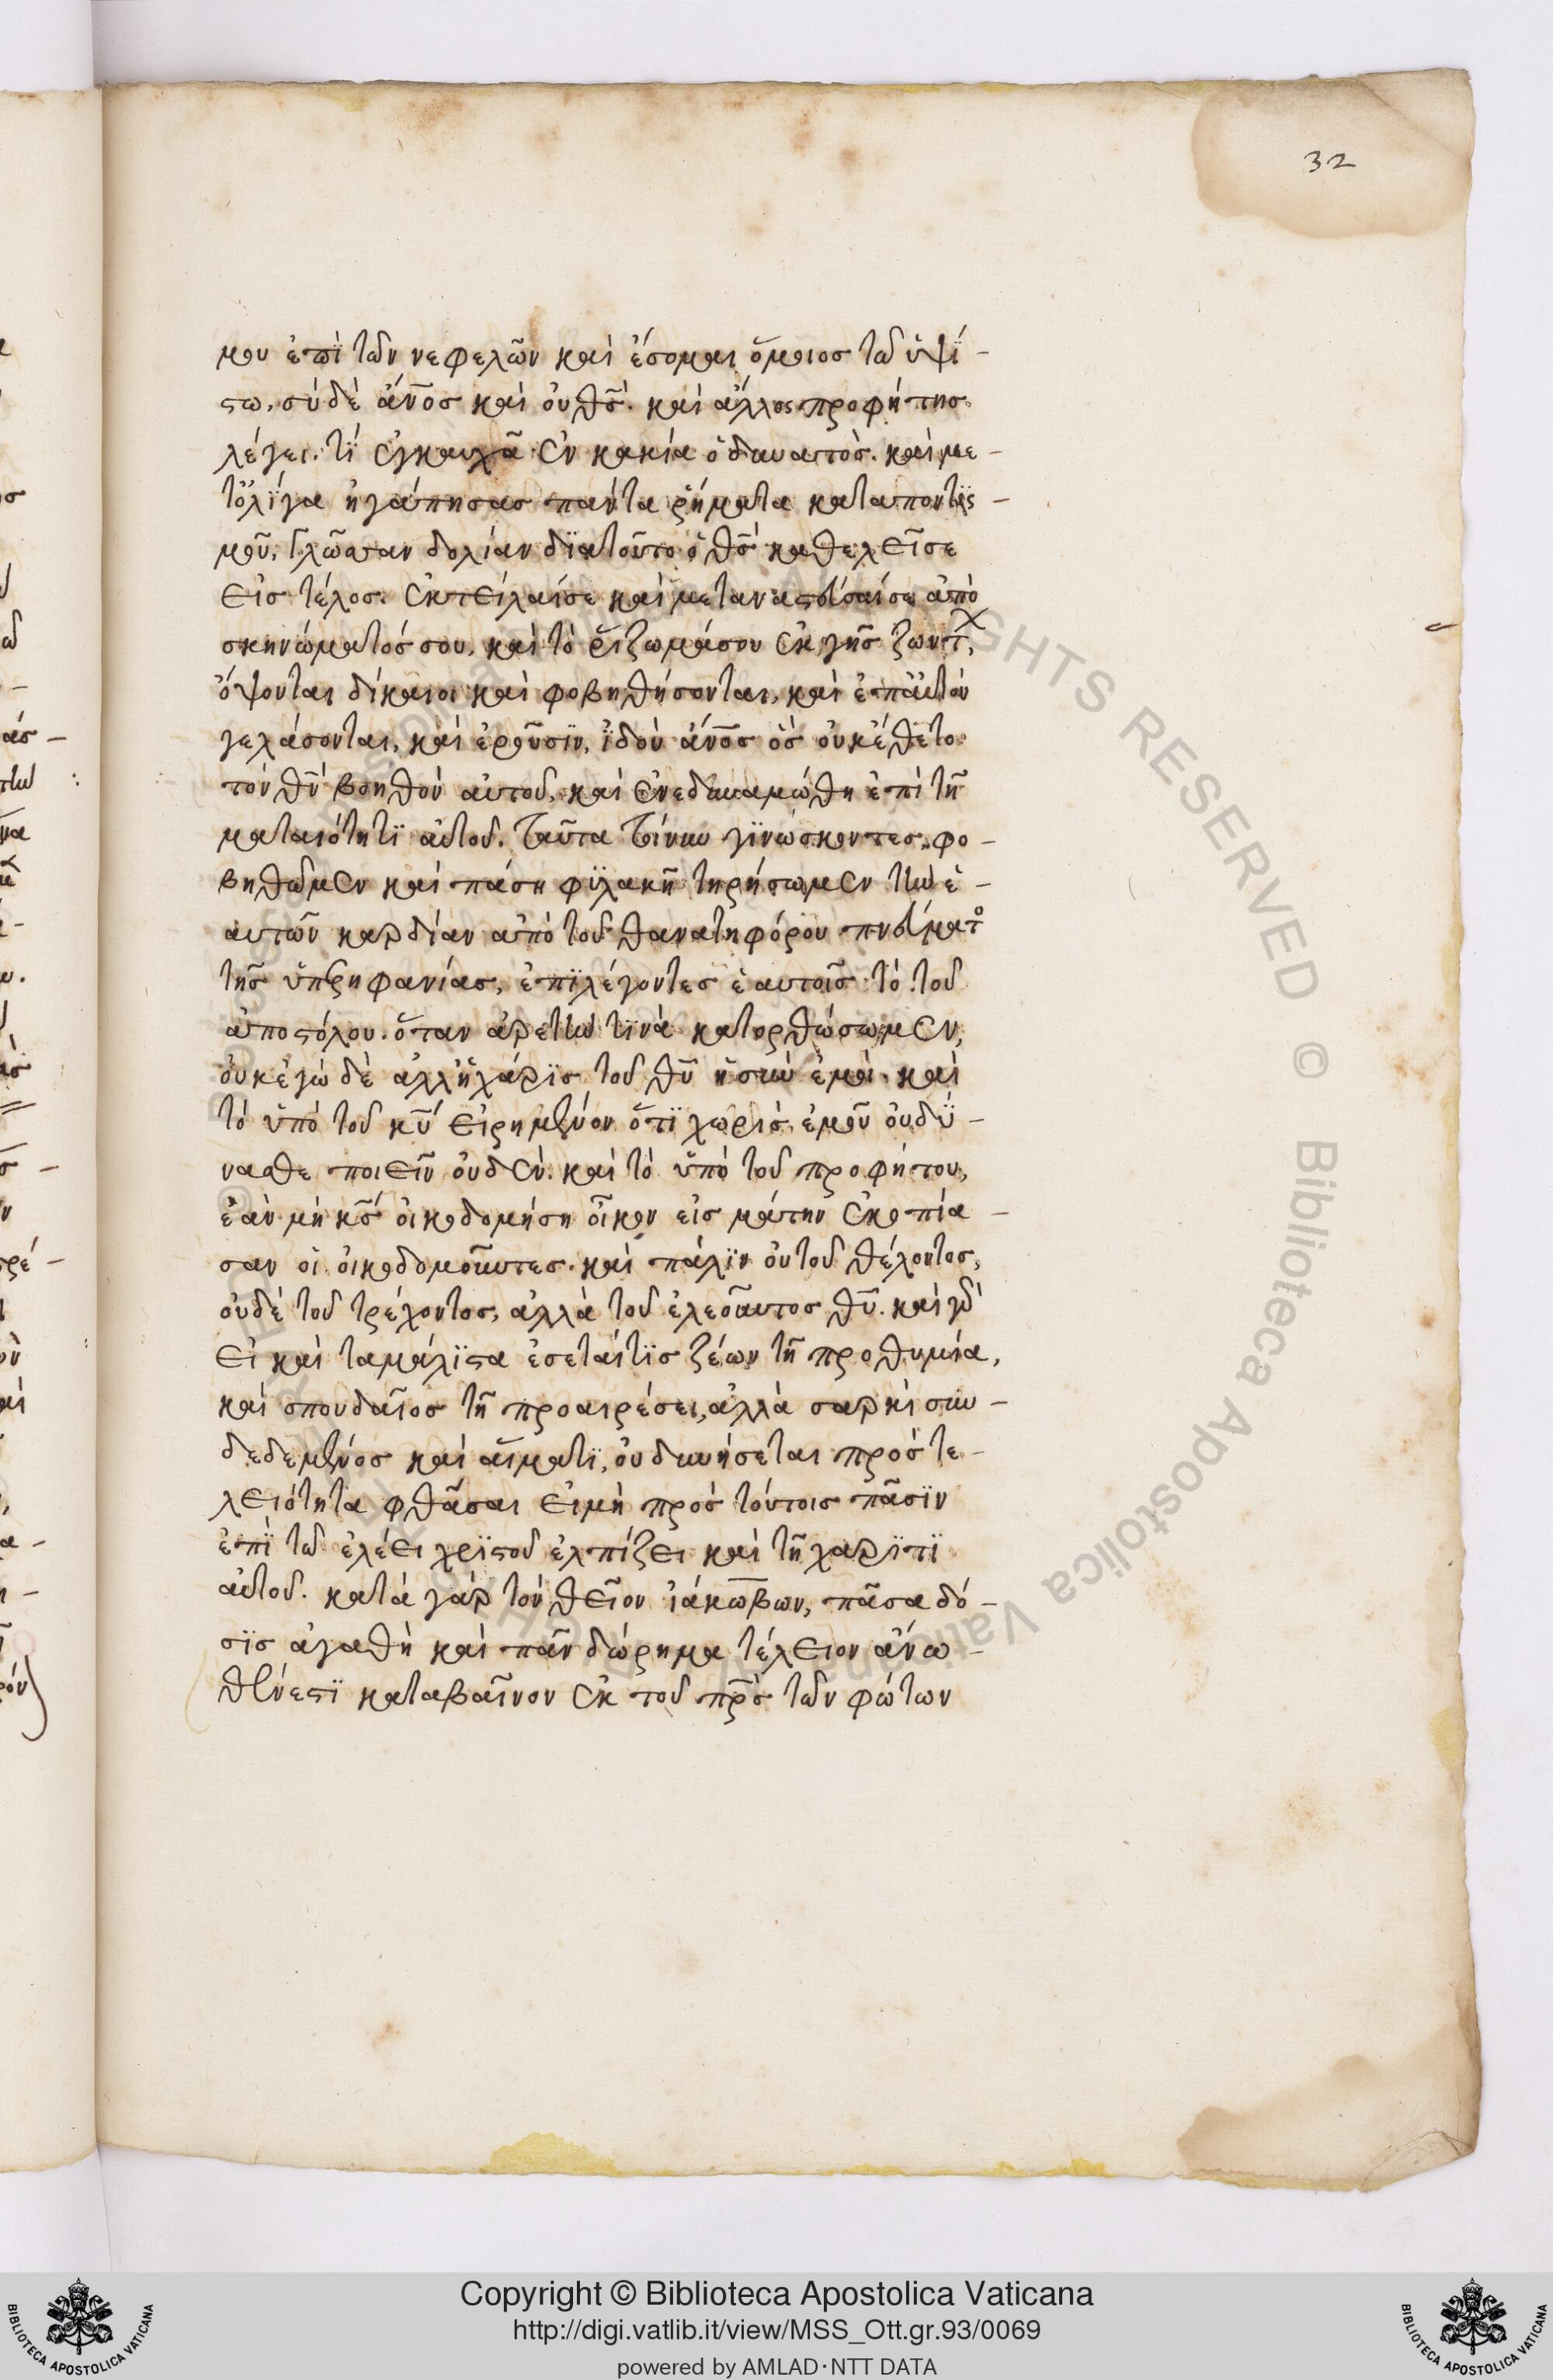 32
μου ἐπὶ τῶν νεφελῶν καὶ ἔσομαι ὅμοιος τῶ ὑψί-
στω. σὺ δὲ ἄν̅ος καὶ οὐ θς̅. καὶ ἄλλος προφήτης
λέγει. τί ἐγκαυχᾶ ἐν κακία ὁ δυνατὸς. καὶ με-
τ᾽ ὀλίγα ἠγάπησας πάντα ῥήματα καταποντϊς-
μοῦ, γλῶσσαν δολίαν διατοῦτο ὁ θς̅ καθελεῖ σε
εἰς τέλος. ἐκτείλαί σε καὶ μεταναστεύσαί σε ἀπὸ
σκηνώματός σου, καὶ τὸ ῥίζωμά σου ἐκ γῆς ζώντ,
ὄψονται δίκαιοι καὶ φοβηθήσονται, καὶ ἐπ᾽ αὐτὸν
γελάσονται, καὶ ἐροῦσϊν, ϊδοὺ ἄν̅ος ὃς οὐκ ἔθετο
τὸν θν̅ βοηθὸν αὐτοῦ, καὶ ἐνεδυναμώθη ἐπὶ τῆ
ματαιότητϊ αὐτοῦ. ταῦτα τοίνυν γϊνώσκοντες, φο-
βηθῶμεν καὶ πάση φϋλακῆ τηρήσωμεν τὴν ἑ-
αυτῶν καρδίαν ἀπὸ τοῦ θανατηφόρου πνεύματο
τῆς ὑπερηφανίας, ἐπϊλέγοντες ἑαυτοῖς τὸ τοῦ
ἀποστόλου. ὅταν ἀρετὴν τϊνὰ κατορθώσωμεν,
οὐκ ἐγὼ δὲ ἀλλ᾽ ἡ χάρϊς τοῦ θυ̅ ἡ σὺν ἐμοὶ. καὶ
τὸ ὑπὸ τοῦ κυ̅ εἰρημένον ὅτϊ χωρὶς ἐμοῦ οὐ δύ-
νασθε ποιεῖν οὐδὲν. καὶ τὸ ὑπὸ τοῦ προφήτου,
ἐὰν μὴ κς̅ οἰκοδομήση οἶκον εἰς μάτην ἐκοπία-
σαν οἱ οἰκοδομοῦντες. καὶ πάλϊν οὐ τοῦ θέλοντος,
οὐδὲ τοῦ τρέχοντος, ἀλλὰ τοῦ ἐλεοῦντος θυ̅. καὶ γὰρ
εἰ καὶ τα μάλϊστα ἐσεταί τϊς ζέων τῆ προθυμία,
καὶ σπουδαῖος τῆ προαιρέσει, ἀλλὰ σαρκὶ συν-
δεδεμένος καὶ αἵματϊ, οὐ δυνήσεται πρὸς τε-
λειότητα φθᾶσαι εἰ μὴ πρὸς τούτοις πᾶσϊν
ἐπὶ τῶ ἐλέει χρϊστοῦ ἐλπίζει καὶ τῆ χάρϊτϊ
αὐτοῦ. κατὰ γὰρ τὸν θεῖον ἰάκωβων, πᾶσα δό-
σϊς ἀγαθὴ καὶ πᾶν δώρημα τέλειον ἄνω-
θέν εστϊ καταβαῖνον ἐκ τοῦ πρς̅ τῶν φώτων
Copyright © Biblioteca Apostolica Vaticana
http://digi.vatlib.it/view/MSS_Ott.gr.93/0069
powered by AMLAD·NTT DATA